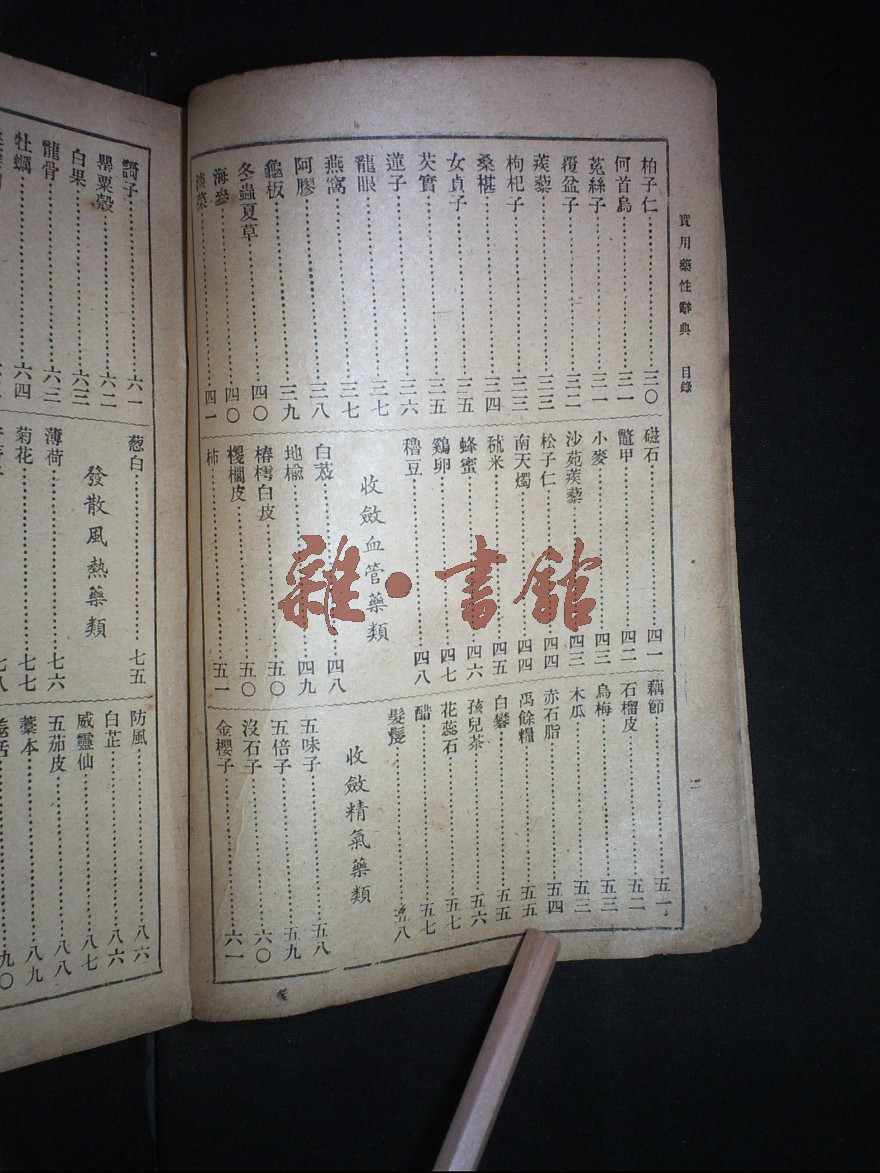 實用藥性辭典 目錄
二
柏子仁 三〇
何首烏 三一
菟絲子 三一
覆盆子 三二
蒺藜 三三
枸杞子 三三
桑椹 三四
女貞子 三五
芡實 三五
蓮子 三六
龍眼 三七
燕窩 三七
阿膠 三八
龜板 三九
冬蟲夏草 四〇
海參 四〇
淡菜 四一
磁石 四一
鼈甲 四二
小麥 四三
沙苑蒺藜 四三
松子仁 四四
南天燭 四四
秫米 四五
蜂蜜 四六
鷄卵 四七
穭豆 四八
收斂血管藥類
白芨 四八
地榆 四九
椿樗白皮 五〇
椶櫚皮 五〇
柿 五一
藕節 五一
石榴皮 五二
烏梅 五三
木瓜 五三
赤石脂 五四
禹餘糧 五五
白礬 五五
孩兒茶 五六
花蕊石 五七
醋 五七
髮髲 五八
收斂精氣藥類
五味子 五八
五倍子 五九
沒石子 六〇
金櫻子 六一
訶子 六一
罌粟殼 六二
白果 六三
龍骨 六三
牡蠣 六四
葱白 七五
發散風熱藥類
薄荷 七六
菊花 七七
七八
防風 八六
白芷 八六
威靈仙 八七
五茄皮 八八
藁本 八九
羌活 九〇
雜·書館